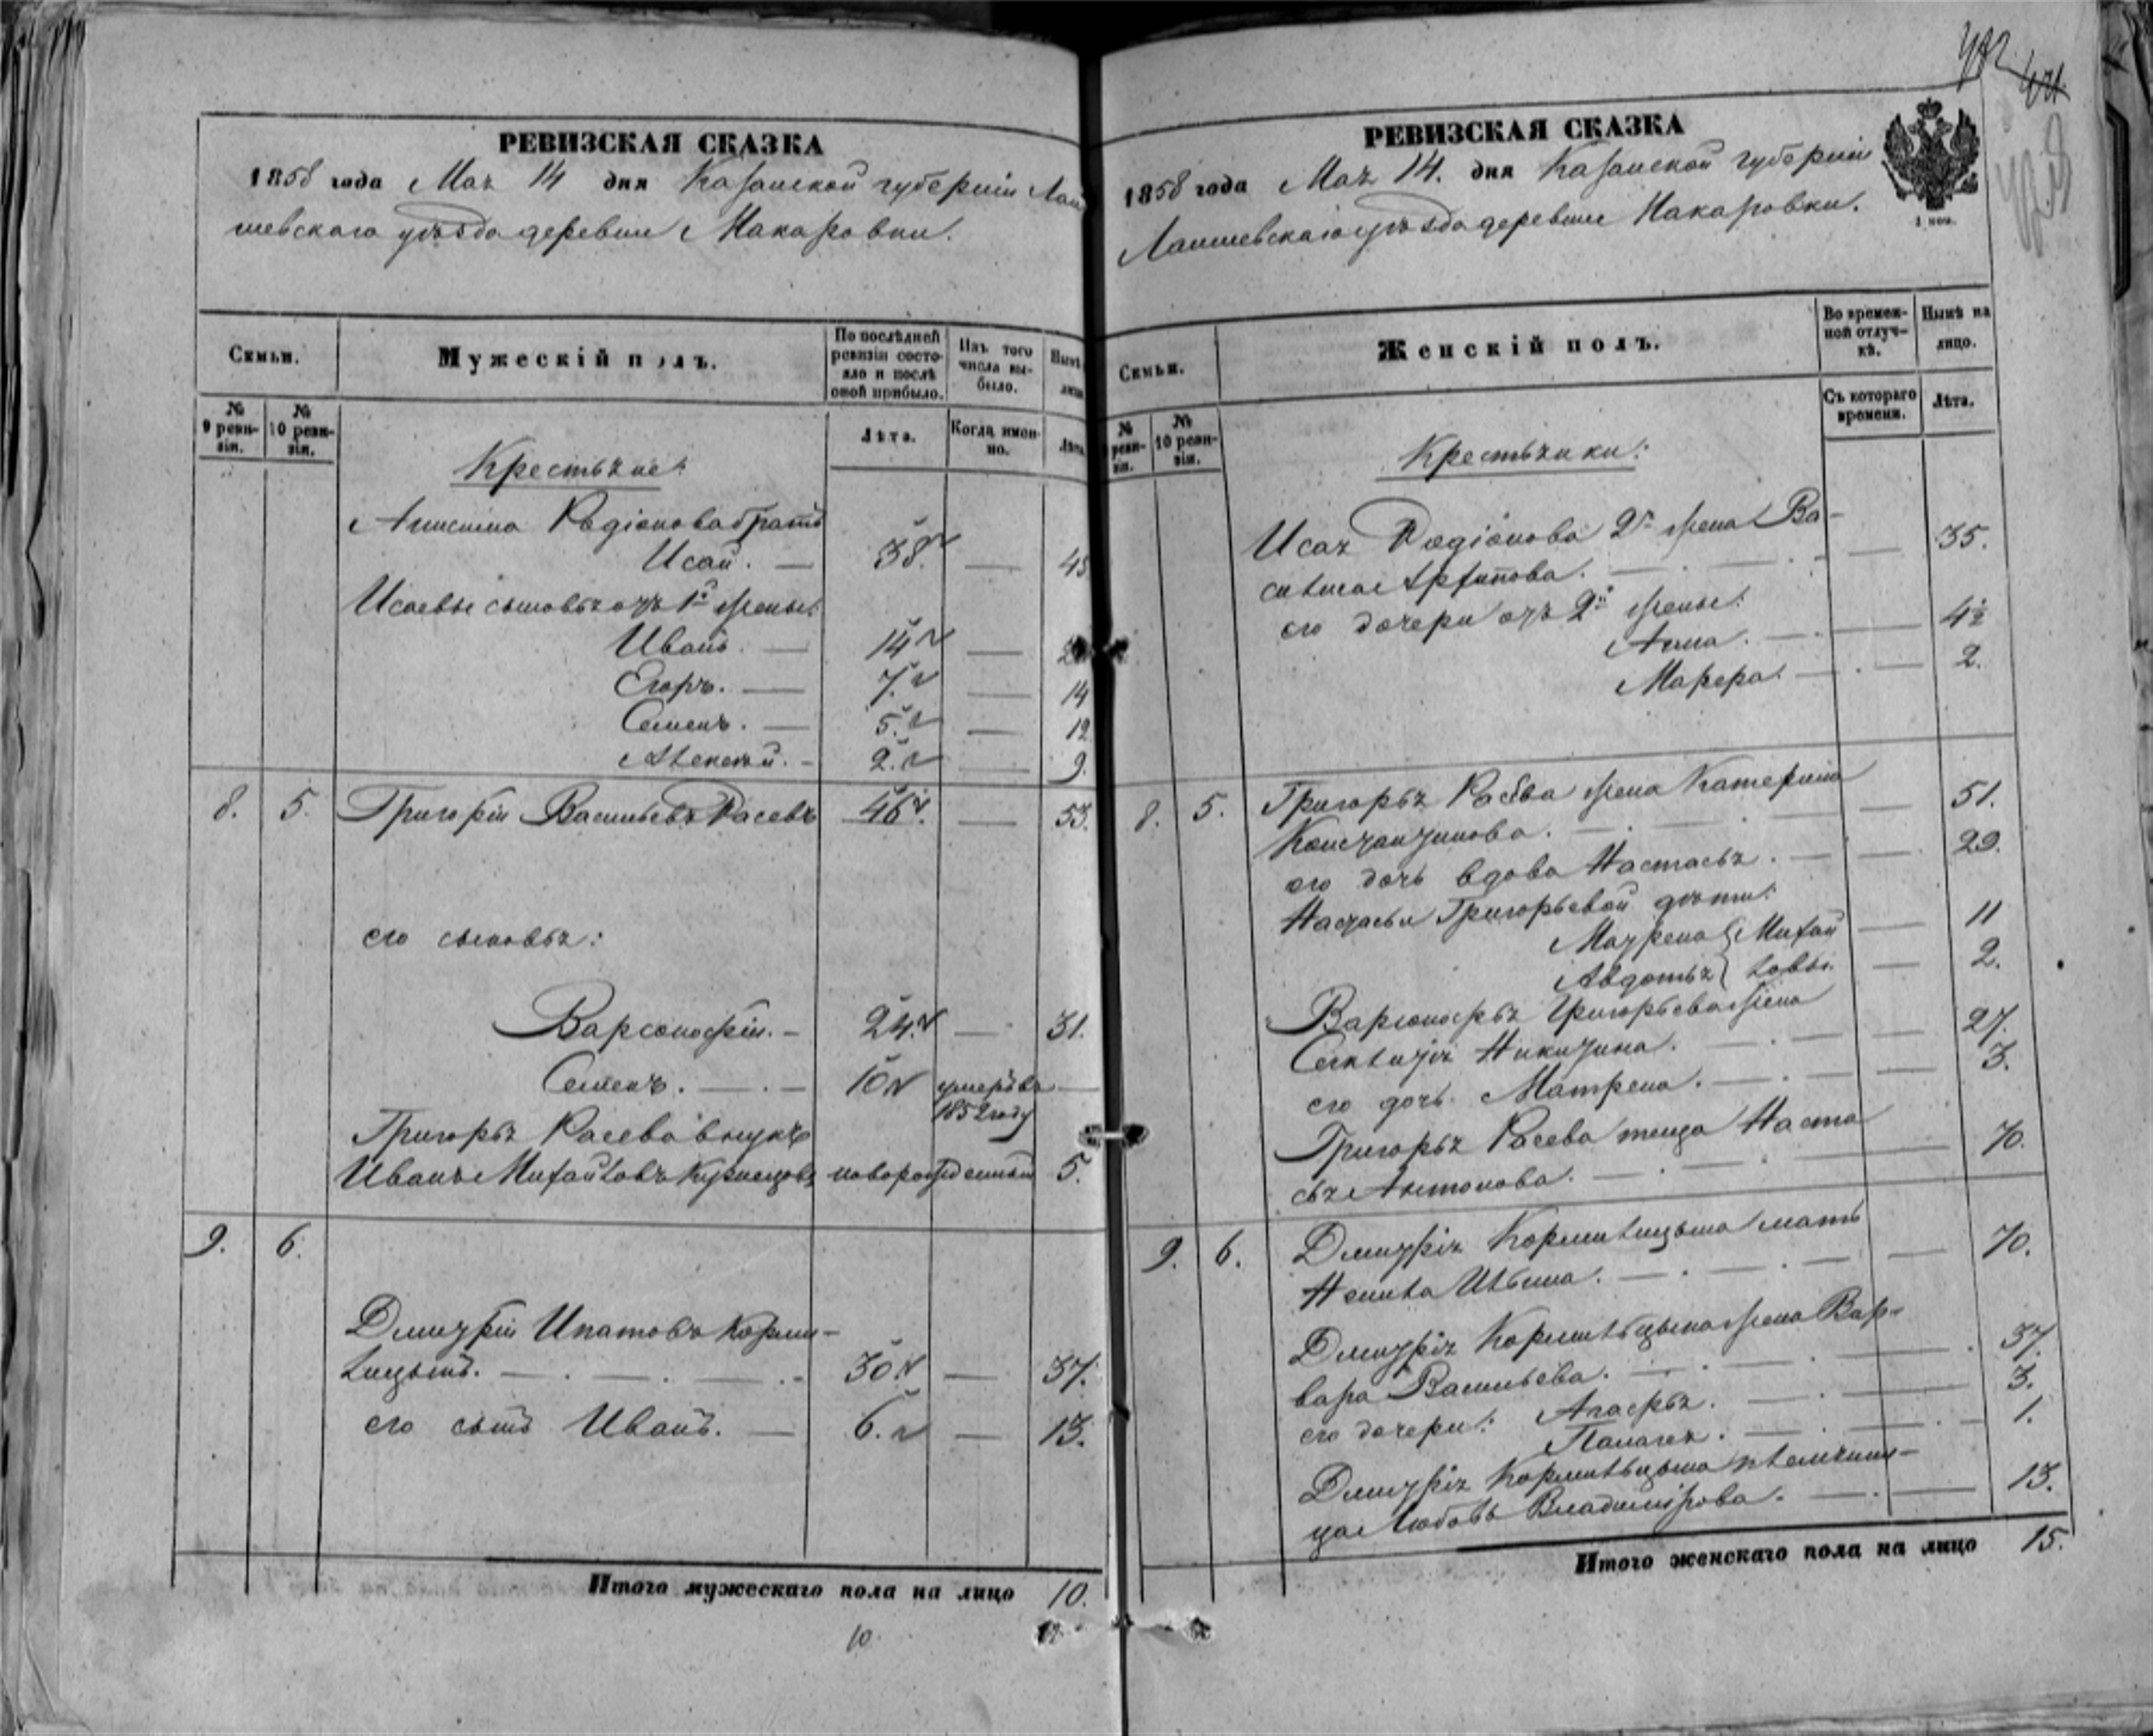 РЕВИЗСКАЯ СКАЗКА
1858 года Мая 14 дня Казанской губерніи Лаи
шевскаго уѣзда деревни Макаровки.
Семьи.
Мужескій полъ.
По послѣдней ревизіи состояло и послѣ оной прибыло.
Изъ того числа выбыло.
№ 9 ревизіи.
№ 10 ревизіи.
Лѣта.
Когда именно.
Лѣта
Крестьяне:
Анисима Родіонова братъ
Исай. — 38. — 45
Исаевы сыновья отъ 1й жены:
Иванъ. — 14 —
Егоръ. — 7. — 14
Семенъ. — 5. — 12
Алексѣй. — 2. — 9.
8. 5. Григорій Васильевъ Расевъ 46. — 53.
его сыновья:
Варсонофій. — 24. — 31.
Семенъ. — 10 умеръ въ —
1852 году
Григорья Расева внукъ
Иванъ Михайловъ Кузнецовъ новорожденный 5.
9. 6.
Дмитрій Ипатовъ Корми-
лицынъ. — 30. — 37.
его сынъ Иванъ. — 6. — 13.
Итого мужескаго пола на лицо 10.
10.
РЕВИЗСКАЯ СКАЗКА
1858 года Мая 14. дня Казанской губерніи
Лаишевскаго уѣзда деревни Макаровки.
Семьи.
Женскій полъ.
Во временной отлучкѣ.
Нынѣ на лицо.
№ 10 ревизіи.
Съ котораго времени.
Лѣта.
Крестьянки:
Исая Родіонова 2я жена Ва-
силиса Архипова. — 35.
его дочери отъ 2й жены:
Анна. — 4½
Марфа. — 2.
8. 5. Григорья Расева жена Катерина
Константинова. — 51.
его дочь вдова Настасья. — 29.
Настасьи Григорьевой дѣти:
Матрена } Михай 11
Авдотья } ловы. 2.
Варсонофья Григорьева жена
Секлитія Никитина. — 27.
его дочь Матрена. — 3.
Григорья Расева теща Наста
сья Антонова. — 70.
9. 6. Дмитрія Кормилицына мать
Ненила Ильина. — 70.
Дмитрія Кормилицына жена Вар-
вара Васильева. — 37.
его дочери: Агафья. — 3.
Палагея. — 1.
Дмитрія Кормилицына племянни-
ца Любовь Владимірова. — 13.
Итого женскаго пола на лицо 15.